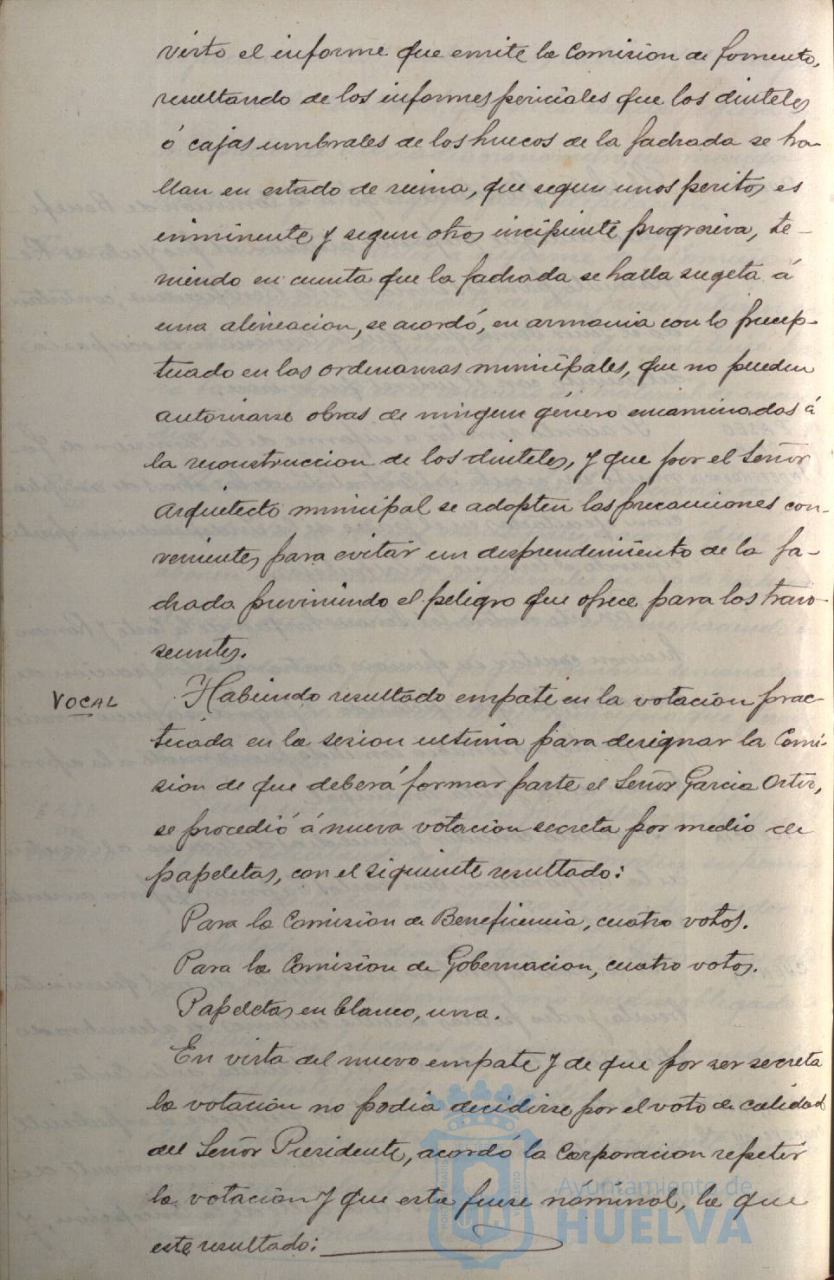 visto el informe que emite la Comision de fomento,
resultando de los informes periciales que los dinteles
ó cajas umbrales de los huecos de la fachada se ha-
llan en estado de ruina, que segun unos peritos es
inminente y segun otros incipiente progresiva, te-
niendo en cuenta que la fachada se halla sugeta á
una alineacion, se acordó, en armonia con lo precep-
tuado en las ordenanzas municipales, que no pueden
autorizarse obras de ningun género encaminadas á
la reconstruccion de los dinteles, y que por el Señor
Arquitecto municipal se adopten las precauciones con-
venientes para evitar un desprendimiento de la fa-
chada previniendo el peligro que ofrece para los tran-
seuntes.
VOCAL
Habiendo resultado empate en la votacion prac-
ticada en la sesion ultima para designar la Comi-
sion de que deberá formar parte el Señor Garcia Ortiz,
se procedió á nueva votacion secreta por medio de
papeletas, con el siguiente resultado:
Para la Comision de Beneficencia, cuatro votos.
Para la Comision de Gobernacion, cuatro votos.
Papeletas en blanco, una.
En vista del nuevo empate y de que por ser secreta
la votacion no podia decidirse por el voto de calidad
del Señor Presidente, acordó la Corporacion repetir
la votacion y que esta fuese nominal, la que
este resultado:
Ayuntamiento de
HUELVA